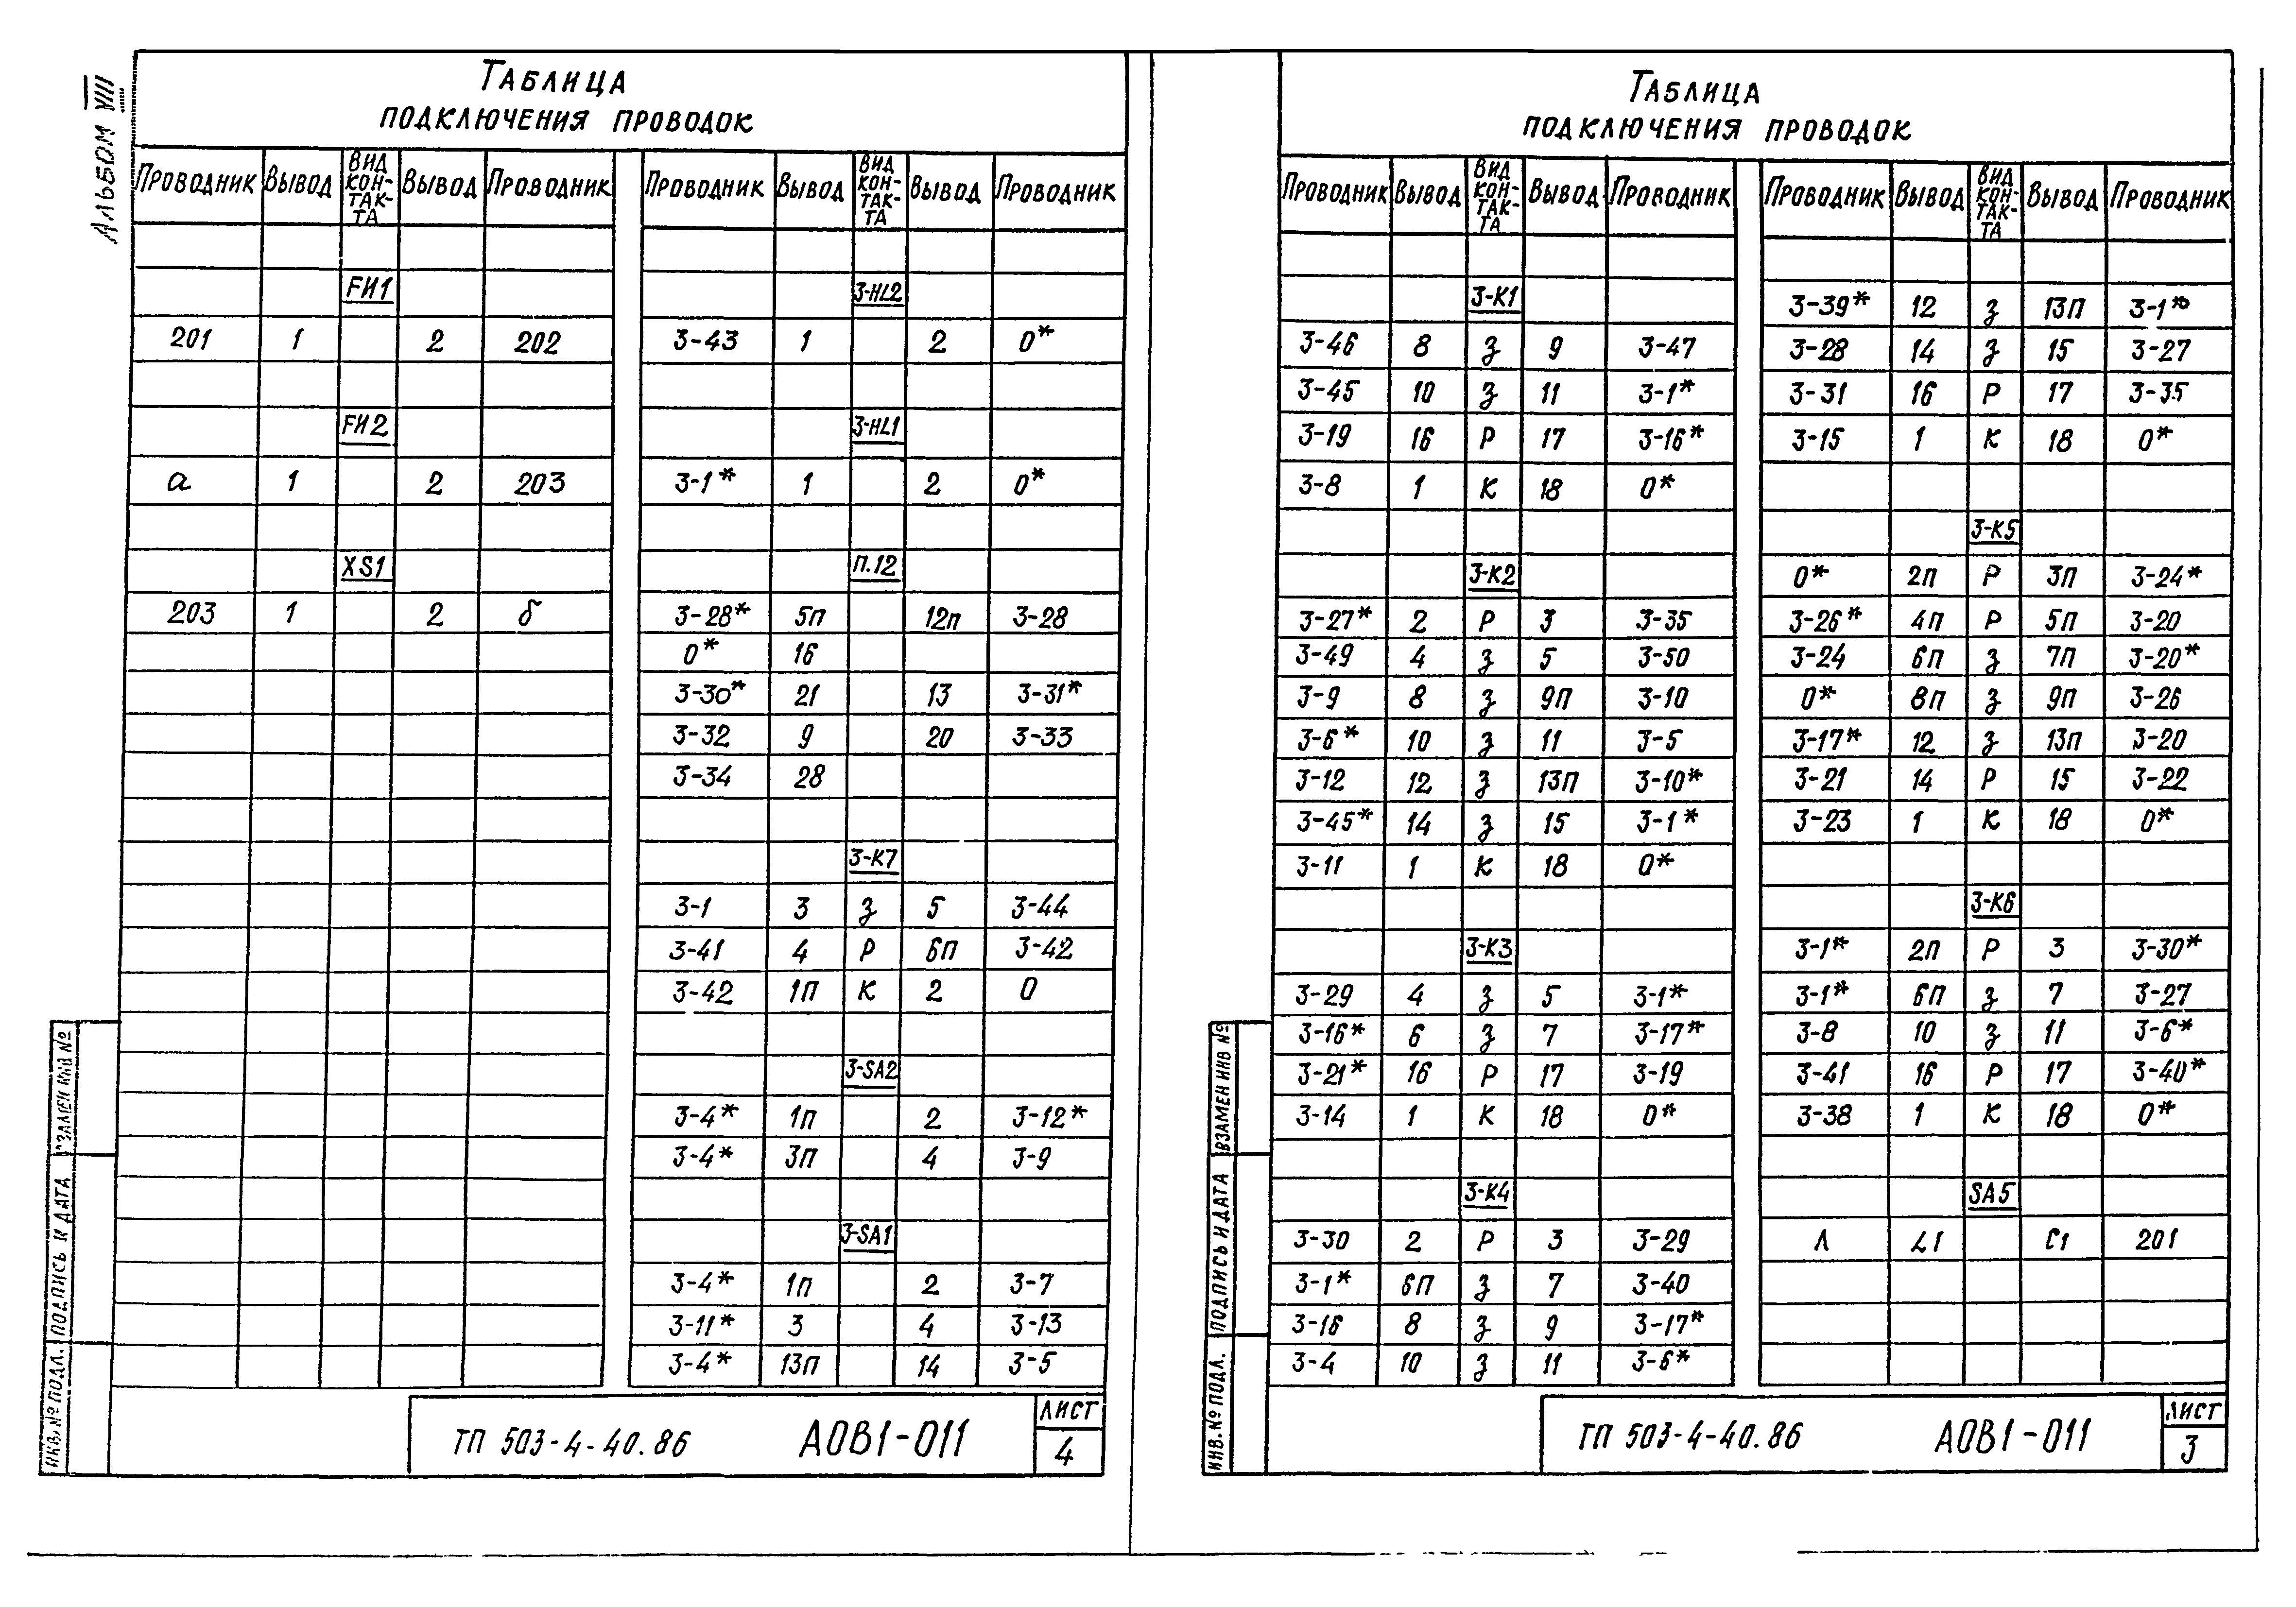 Альбом VIII
Таблица
подключения проводок
Проводник Вывод Вид контакта Вывод Проводник
FИ1
201 1 2 202
FИ2
а 1 2 203
XS1
203 1 2 б
Проводник Вывод Вид контакта Вывод Проводник
3-HL2
3-43 1 2 0*
3-HL1
3-1* 1 2 0*
П.12
3-28* 5п 12п 3-28
0* 16
3-30* 21 13 3-31*
3-32 9 20 3-33
3-34 28
3-К7
3-1 3 З 5 3-44
3-41 4 Р 6П 3-42
3-42 1П К 2 0
3-SA2
3-4* 1п 2 3-12*
3-4* 3п 4 3-9
3-SA1
3-4* 1п 2 3-7
3-11* 3 4 3-13
3-4* 13П 14 3-5
Инв. № подл. Подпись и дата Взамен инв №
ТП 503-4-40.86 АОВ1-011 Лист 4
Таблица
подключения проводок
Проводник Вывод Вид контакта Вывод Проводник
3-К1
3-46 8 З 9 3-47
3-45 10 З 11 3-1*
3-19 16 Р 17 3-16*
3-8 1 К 18 0*
3-К2
3-27* 2 Р 3 3-35
3-49 4 З 5 3-50
3-9 8 З 9П 3-10
3-6* 10 З 11 3-5
3-12 12 З 13П 3-10*
3-45* 14 З 15 3-1*
3-11 1 К 18 0*
3-К3
3-29 4 З 5 3-1*
3-16* 6 З 7 3-17*
3-21* 16 Р 17 3-19
3-14 1 К 18 0*
3-К4
3-30 2 Р 3 3-29
3-1* 6П З 7 3-40
3-16 8 З 9 3-17*
3-4 10 З 11 3-6*
Проводник Вывод Вид контакта Вывод Проводник
3-39* 12 З 13П 3-1*
3-28 14 З 15 3-27
3-31 16 Р 17 3-35
3-15 1 К 18 0*
3-К5
0* 2п Р 3П 3-24*
3-26* 4п Р 5п 3-20
3-24 6П З 7П 3-20*
0* 8П З 9п 3-26
3-17* 12 З 13П 3-20
3-21 14 Р 15 3-22
3-23 1 К 18 0*
3-К6
3-1* 2п Р 3 3-30*
3-1* 6П З 7 3-27
3-8 10 З 11 3-6*
3-41 16 Р 17 3-40*
3-38 1 К 18 0*
SA5
Л L1 С1 201
Инв. № подл. Подпись и дата Взамен инв №
ТП 503-4-40.86 АОВ1-011 Лист 3